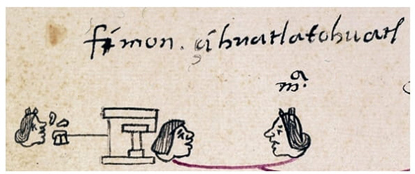 simon. çihuatlatohuatl
mª